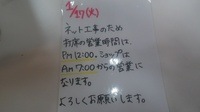 1/17(火)
ネット工事のため
打席の営業時間は、
Pm 12:00. ショップは
Am 7:00からの営業に
なります。
よろしくお願いします。